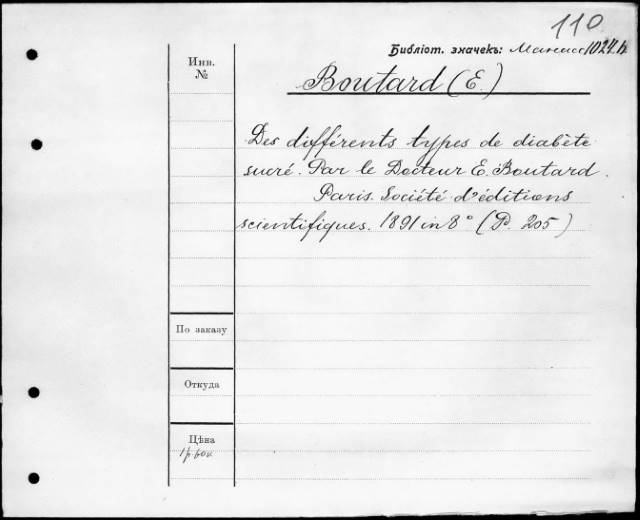 110
Библіот. значекъ: 1024.b
Инв.
№
Boutard (E.)
Des différents types de diabète
sucré. Par le Docteur E. Boutard.
Paris. Société d'éditions
scientifiques. 1891 in 8° (P. 205)
По заказу
Откуда
Цѣна
1 р. 60 к